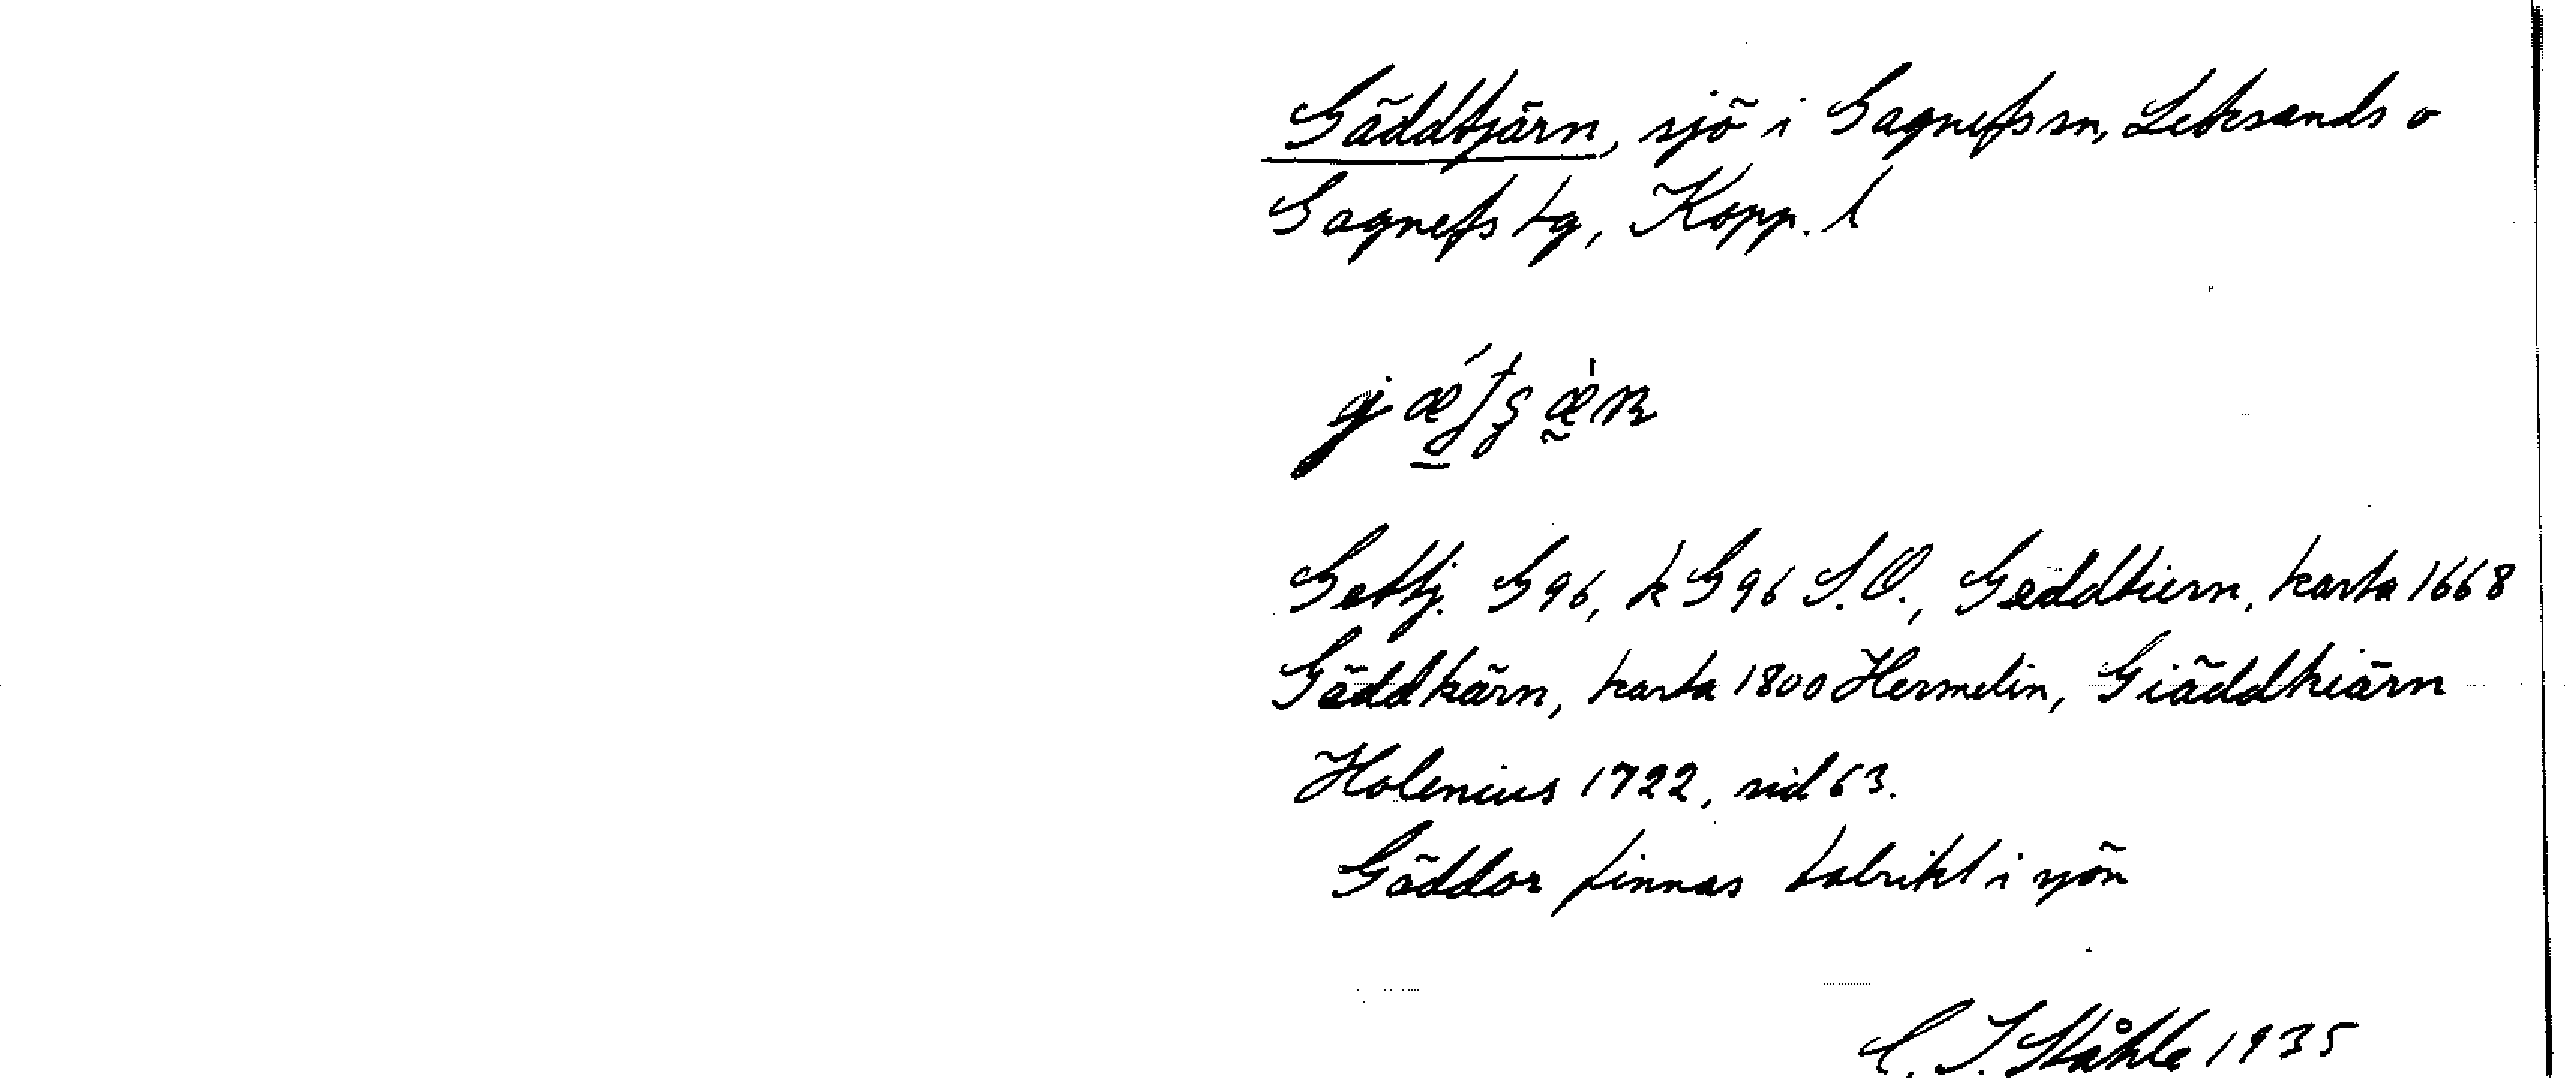 Gäddtjärn, sjö i Gagnefs sn, Leksands o
Gagnefs tg, Kopp. l
Gettj. G96, k G96 S.O., Geddtiern, karta 1668
Gäddkärn, karta 1800 Hermelin, Giäddkiärn
Holenius 1722, sid 63.
Gäddor finnas talrikt i sjön
C. I. Ståhle 1935